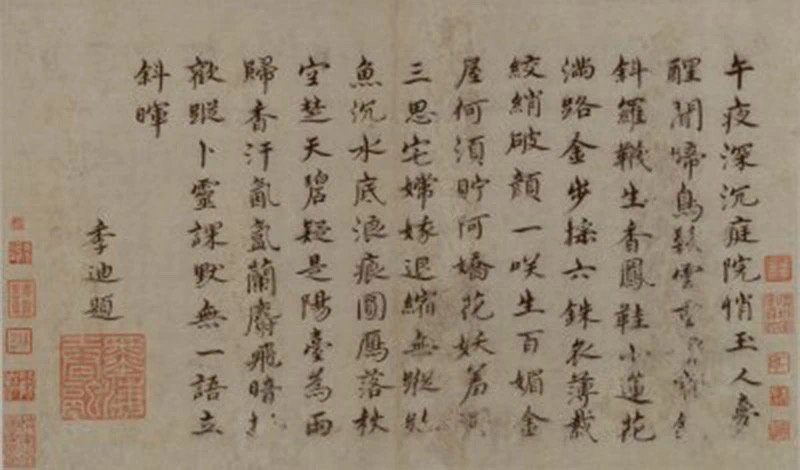 午夜深沉庭院悄玉人夢
醒聞啼鳥鬆雲
斜羅韈生香鳳鞋小蓮花
滿路金步搖六銖衣薄裁
絞綃破顏一咲生百媚金
屋何須貯阿嬌花妖
三思宅嫦娥退縮無蹤
魚沉水底浪痕圓鴈落秋
空楚天碧疑是陽臺為雨
歸香汗氤氳蘭麝飛暗
歡蹤卜靈課默無一語立
斜暉
李迪題